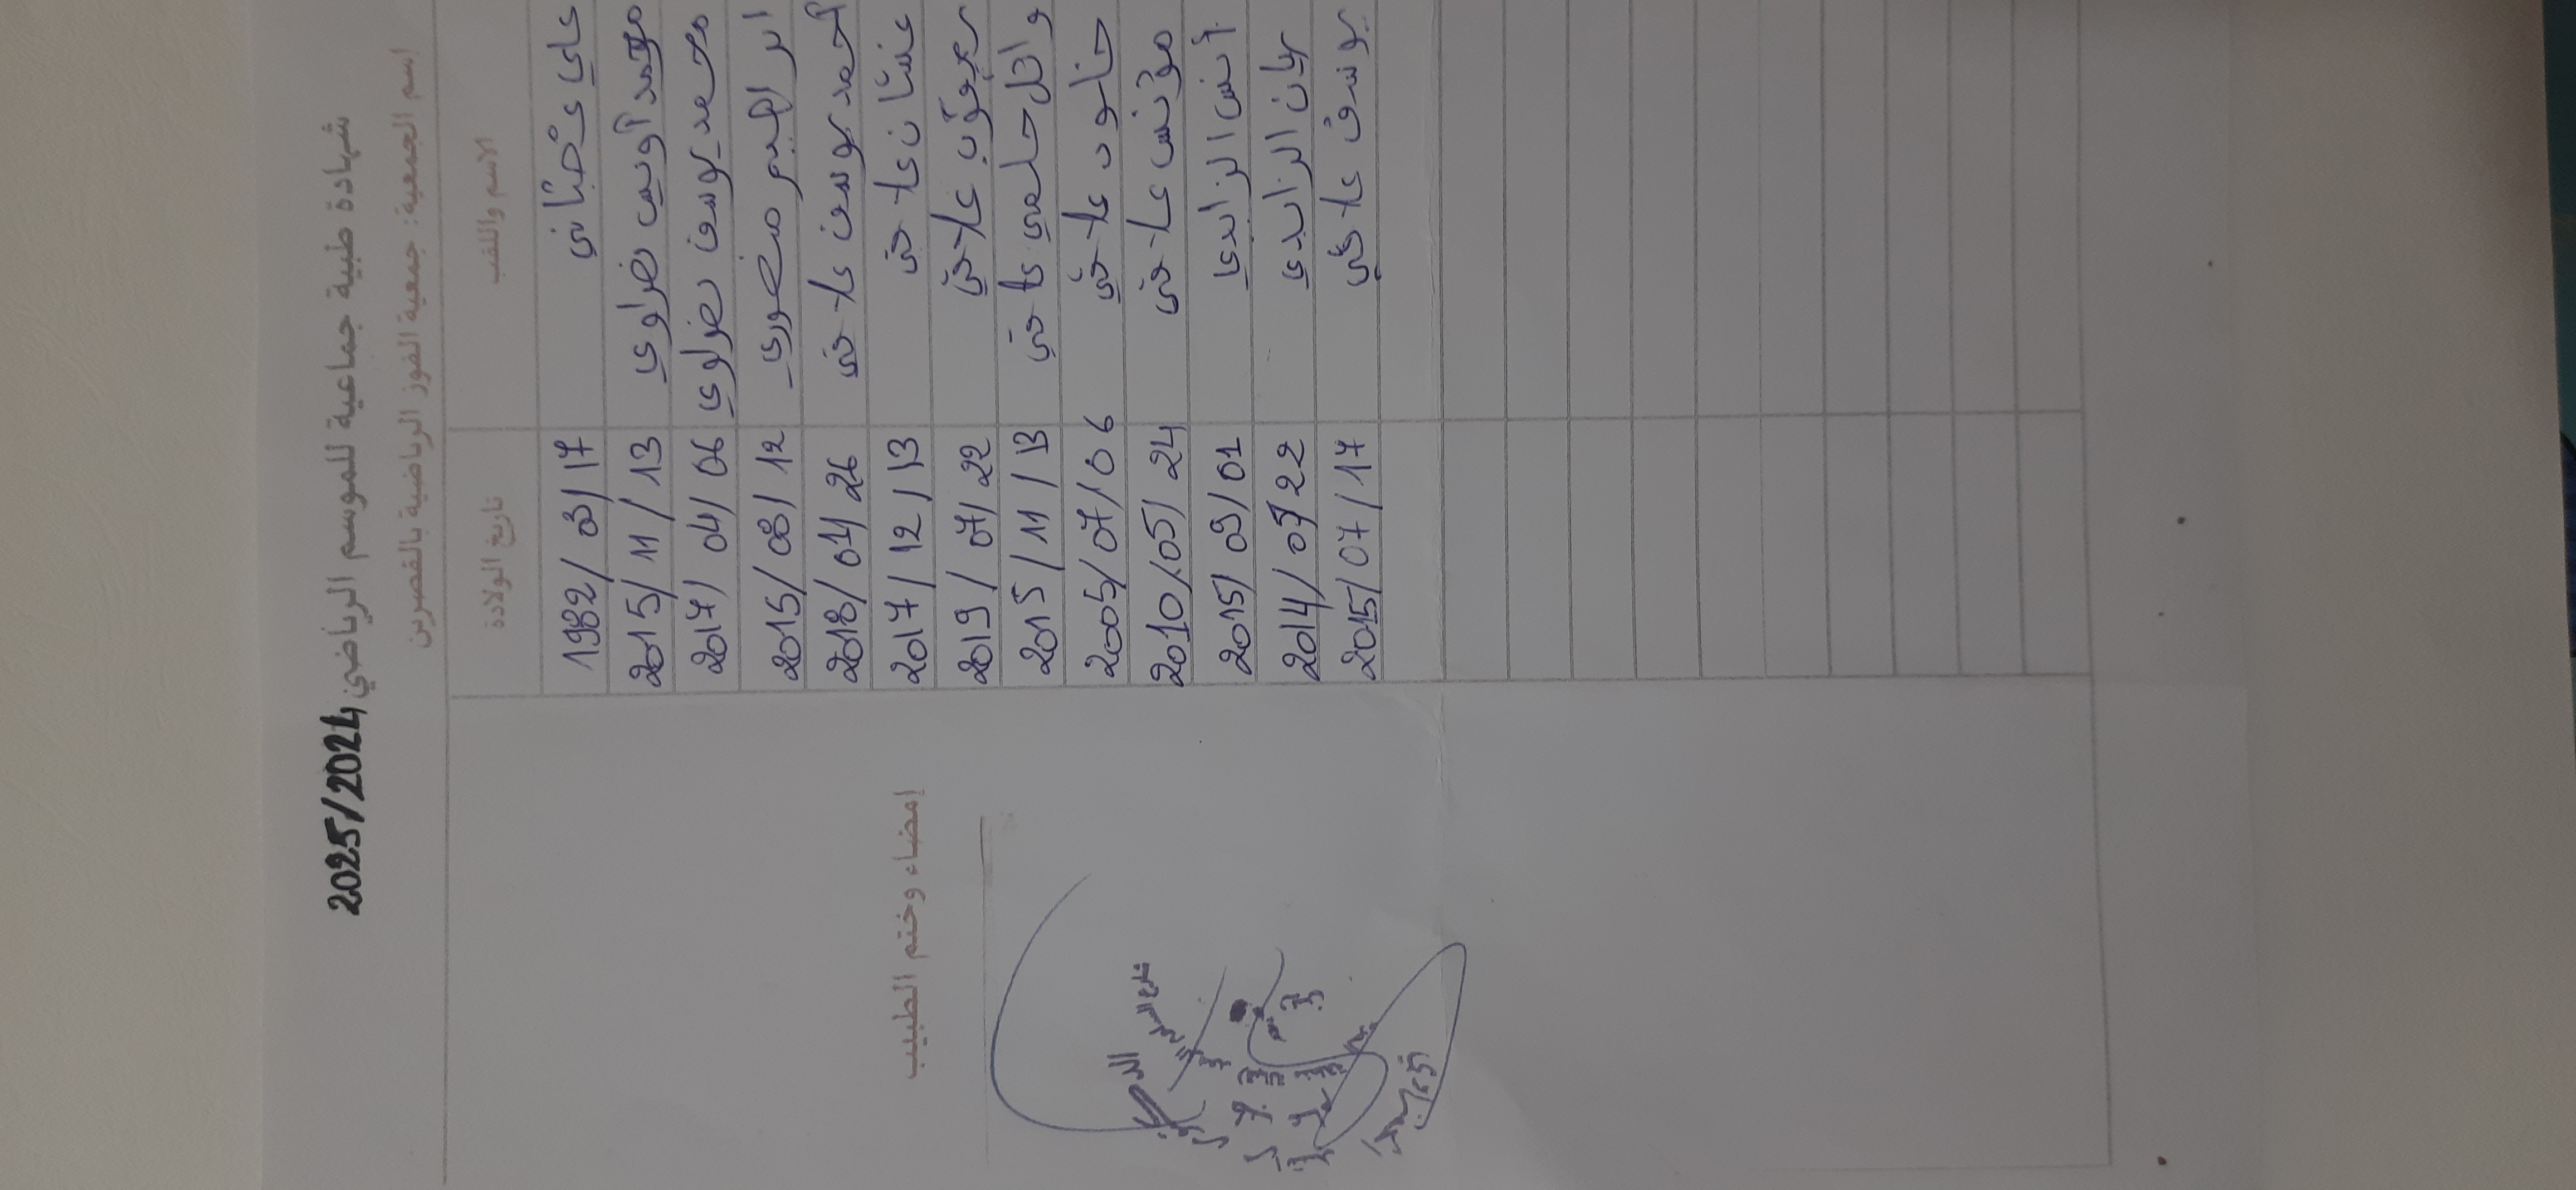 شهادة طبية جماعية للموسم الرياضي 2025/2024
اسم الجمعية: جمعية الفوز الرياضية بالقصرين
الاسم واللقب تاريخ الولادة
علي عثماني 1982/03/17
محمد أويس نصراوي 2015/11/13
محمد يوسف نصراوي 2017/04/06
ابراهيم منصوري 2015/08/12
أحمد يوسف عاجني 2018/04/26
غسان عاجني 2017/12/13
يعقوب عاجني 2019/07/22
وائل حلمي عاجني 2015/11/13
خلود عاجني 2005/07/06
مؤنس عاجني 2010/05/24
أنس الزايدي 2015/09/01
ريان الزايدي 2014/07/22
يوسف عاجني 2015/07/17
إمضاء وختم الطبيب